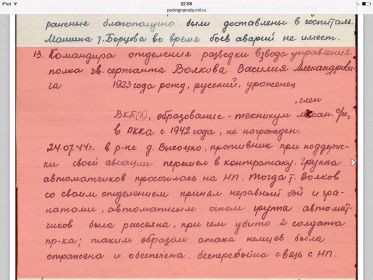 iPad
22:58
podvignaroda.mil.ru
раненые благополучно были доставлены в госпиталь.
Машина т. Борцева во время боев аварий не имеет.
13. Командира отделения разведки взвода управления
полка гв. сержанта Волкова Василия Александрови-
ча 1923 года рожд, русский, уроженец
, член
ВКП(б), образование - техникум
в РККА с 1942 года, не награжден.
24.07.44г. в р-не д. Высочко, противник при поддерж-
ке своей авиации перешел в контратаку. Группа
автоматчиков просочилась на НП. Тогда т. Волков
со своим отделением принял неравный бой и гра-
натами, автоматным огнем группа автомат-
чиков была рассеяна, при чем убито 2 солдата
пр-ка; таким образом атака немцев была
отражена и обеспечена бесперебойна связь с НП.